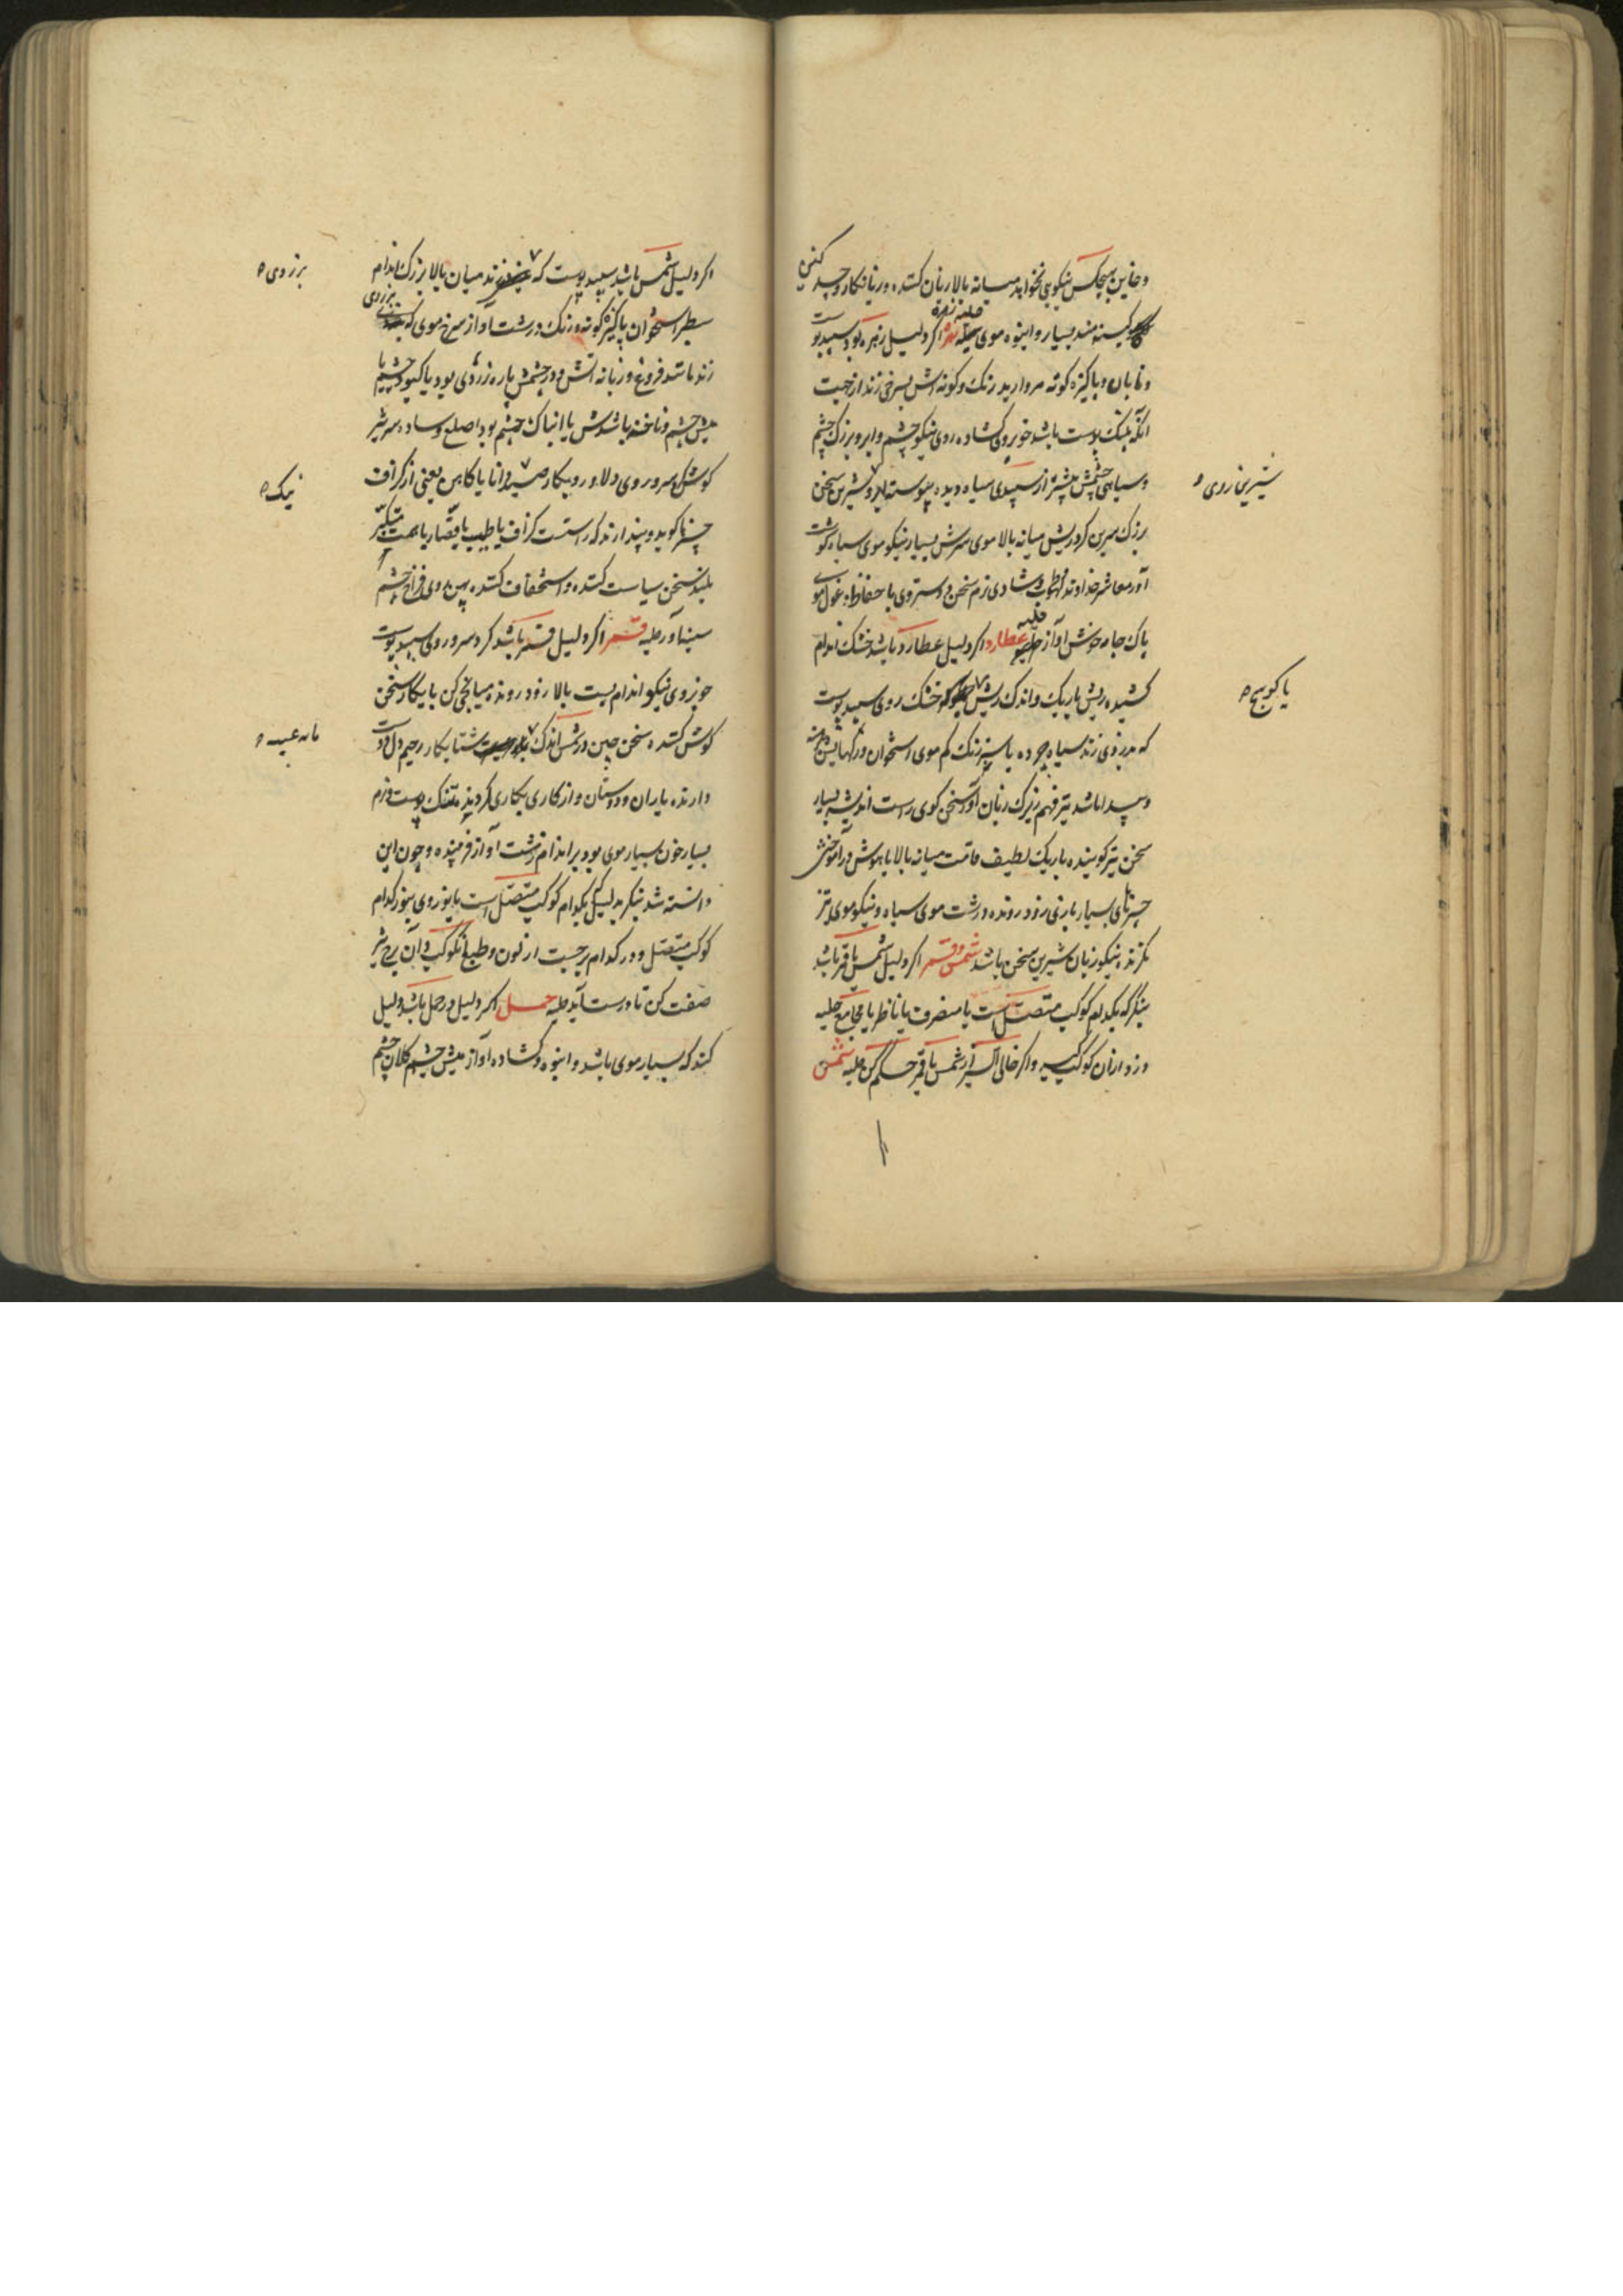 و خاین هیچکس نیکویی نخواهد میانه بالا زیان کننده و زیانکار و حیله کننده
کینه‌مند بسیار و انبوه موی حلیه زهره اگر دلیل زهره بود سپید پوست
و تابان و پاکیزه گونه مروارید رنگ و گونه‌اش بسرخی زند از جهت
آنکه تنک پوست باشد خوبروی گشاده روی نیکو چشم و ابرو بزرگ چشم
و سیاهی چشمش بیشتر از سپیدی سیاه دیده پیوسته ابرو شیرین سخن
شیرین روی
بزرگ سرین گرد ریش میانه بالا موی سرش بسیار نیکو موی سیاه گوشت
آور معاشر خداوند لهو و طرب و شادی نرم سخن و دستروی با حفاظ مرغول موی
پاک جامه خوش آواز حلیه عطارد اگر دلیل عطارد باشد خشک اندام
کشیده ریش باریک و اندک ریش خشک روی سپید پوست
یا کوسج
که بزردی زند سیاه چرده یا سبز رنگ کم موی استخوان و رگهایش
و پیدا باشد تیز فهم زیرک زبان آور سخن گوی راست اندیشه بسیار
سخن تیز گوینده باریک لطیف قامت میانه بالا باهوش در آموختن
چیزهای بسیار بازی زود رونده درشت موی سیاه و نیکو موی تیز
نگرنده نیکو زبان شیرین سخن باشد شمس و قمر اگر دلیل شمس یا قمر باشد
بنگر که بکدام کوکب متصل است یا منصرف یا ناظر یا مجامع حلیه
وز و ازان کوکب گیر و اگر خالی السیر از شمس یا قمر حکم کن حلیه شمس
اگر دلیل شمس باشد سپید پوست که زند میان بالا بزرگ اندام
بزردی
سطبر استخوان پاکیزه گونه و رنگ درشت آواز سرخ موی که بزردی
زند مانند فروغ و زبانه آتش و در چشمش پاره زردی بود یا کبود چشم یا
میش چشم و ناخنه باشدش یا انباک چشم بود اصلع و ساده سر شیر
گوش و سر و روی دلاور و پیکار دانا یا کاهن یعنی از گزاف
نیک
چیزها گوید و پندارند که راست است گزاف یا طبیب یا قصار با همت متکبر
بلند سخن سیاست کننده و استخفاف کننده پهن روی فراخ چشم
سینه‌آور حلیه قمر اگر دلیل قمر باشد گرد سر و روی سپید پوست
خوبروی نیکو اندام پست بالا زود رونده میانجی کن با پیکار سخن
گوش کننده سخن چین در تنش اندک شتابکار رحیم دل دوست
مانه عیب
دارنده یاران و دوستان و از کاری بکاری گردنده تنک پوست و نرم
بسیار خون بسیار موی بود بر اندام زشت آواز فریبنده و چون این
دانسته شد بنگر بدلیل بکدام کوکب متصل است یا بزوی بنور کدام
کوکب متصل و در کدام برجست از لون و طبع آن کوکب و آن برج نیز
صفت کن تا درست آید حلیه حمل اگر دلیل در حمل باشد دلیل
کند که بسیار موی باشد و انبوه و گشاده آواز میش چشم کلان چشم